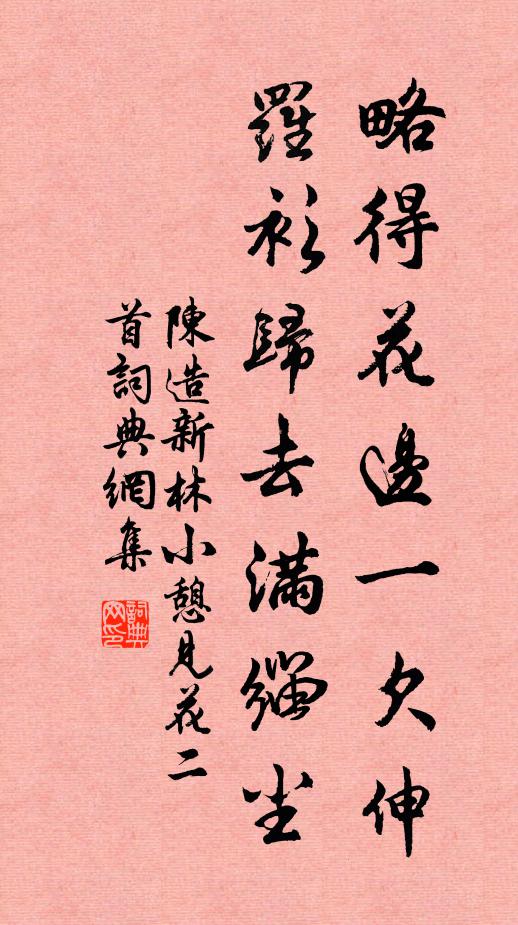 略得花邊一欠伸
羅衫歸去滿緇尘
陳造新林小憩見花二
首詞典網集
詞典
网印